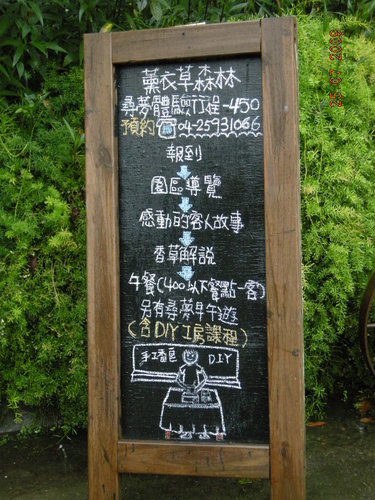 薰衣草森林
尋夢體驗行程-450
預約☎04-25931066
報到
園區導覽
感動的客人故事
香草解說
午餐(400以下餐點一客)
另有尋夢早午遊
(含DIY工房課程)
手工香皂 DIY
25 07 2009